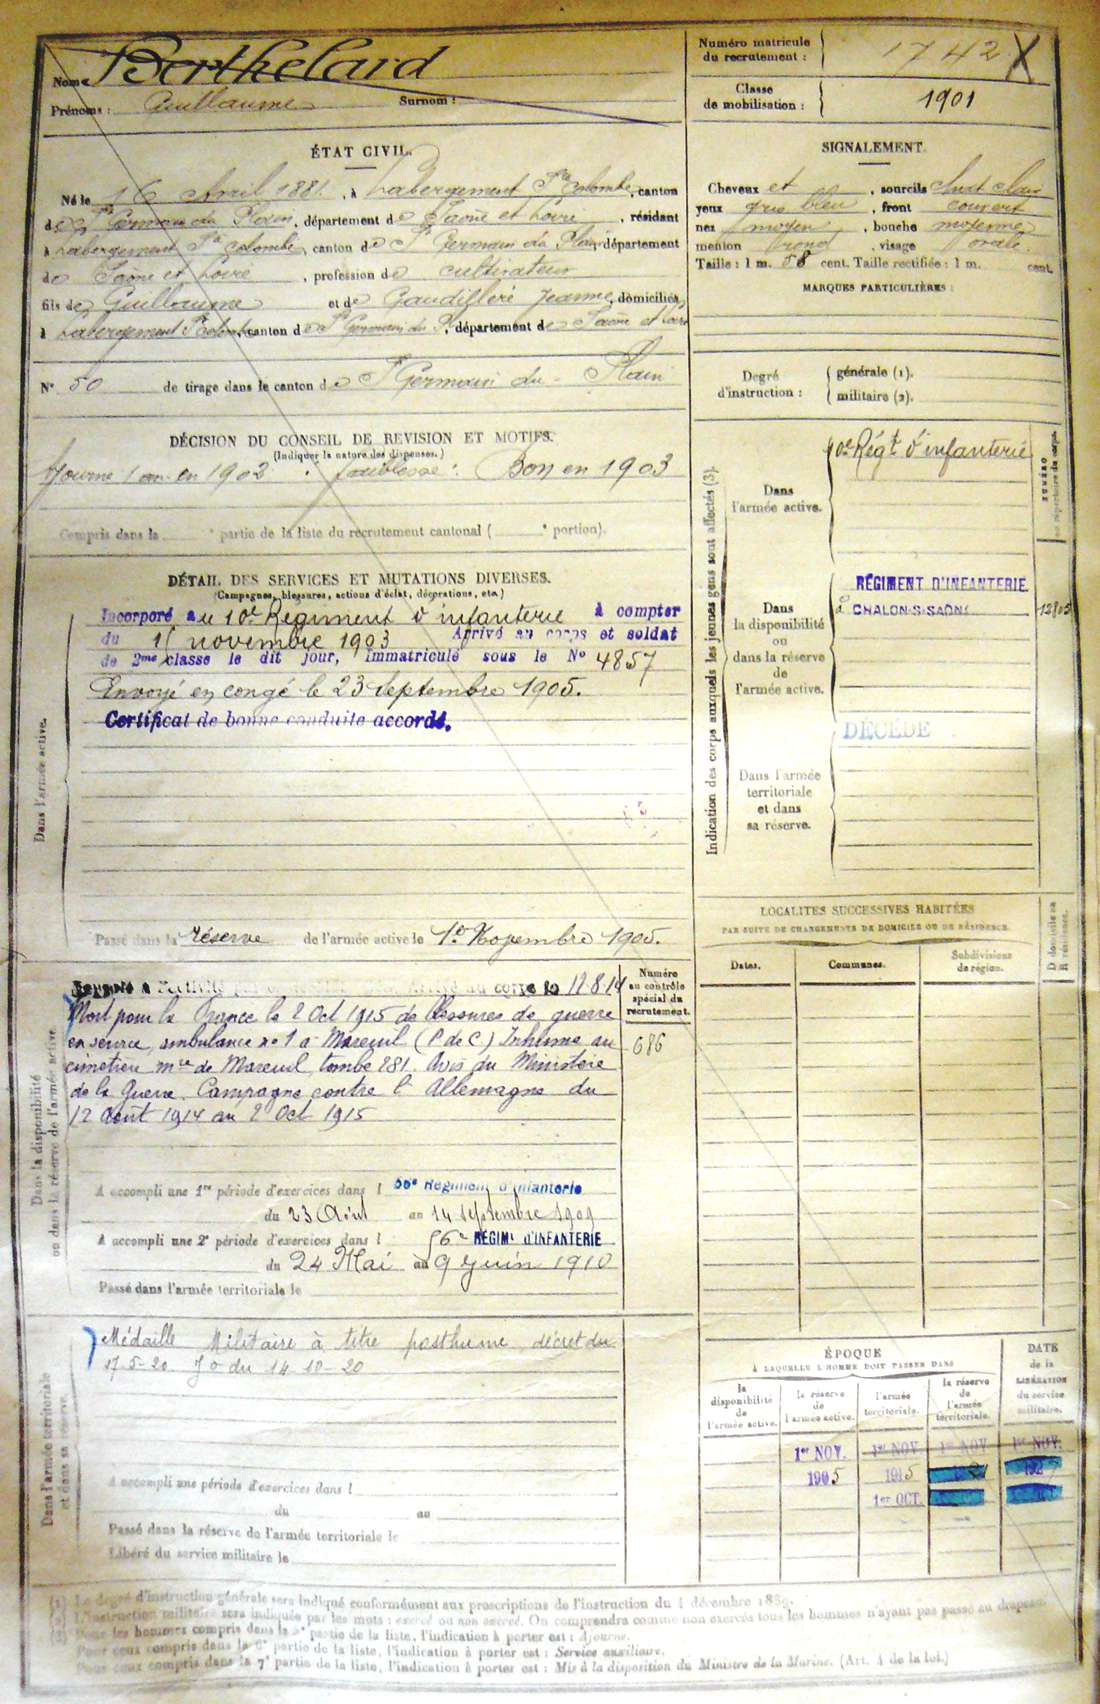 Nom : Berthelard
Prénoms : Guillaume Surnom :
Numéro matricule du recrutement : 1742
Classe de mobilisation : 1901
ÉTAT CIVIL.
Né le 16 Avril 1881, à Labergement Ste Colombe, canton
de St Germain du Plain, département de Saône et Loire, résidant
à Labergement Ste Colombe, canton de St Germain du Plain, département
de Saône et Loire, profession de cultivateur
fils de Guillaume et de Gaudillère Jeanne, domiciliés
à Labergement Ste Colombe, canton de St Germain du Pl, département de Saône et Loire
N° 50 de tirage dans le canton de St Germain du Plain
SIGNALEMENT.
Cheveux et , sourcils chat clair
yeux gris bleu, front couvert
nez moyen, bouche moyenne
menton rond, visage ovale.
Taille : 1 m. 58 cent. Taille rectifiée : 1 m. cent.
MARQUES PARTICULIÈRES :
Degré d'instruction : générale (1).
militaire (2).
DÉCISION DU CONSEIL DE REVISION ET MOTIFS.
(Indiquer la nature des dispenses.)
Ajourné 1 an en 1902 : faiblesse : Bon en 1903
Compris dans la partie de la liste du recrutement cantonal ( portion).
DÉTAIL DES SERVICES ET MUTATIONS DIVERSES.
(Campagnes, blessures, actions d'éclat, décorations, etc.)
Dans l'armée active.
Incorporé au 10e Régiment d'infanterie à compter
du 15 novembre 1903 Arrivé au corps et soldat
de 2me classe le dit jour, Immatriculé sous le N° 4857
Envoyé en congé le 23 Septembre 1905.
Certificat de bonne conduite accordé.
Passé dans la réserve de l'armée active le 1er Novembre 1905.
Indication des corps auxquels les jeunes gens sont affectés (3).
Dans l'armée active.
10e Régt d'infanterie
Dans la disponibilité ou dans la réserve de l'armée active.
RÉGIMENT D'INFANTERIE
à CHALON-S-SAÔNE
Dans l'armée territoriale et dans sa réserve.
DÉCÉDÉ
LOCALITÉS SUCCESSIVES HABITÉES
PAR SUITE DE CHANGEMENTS DE DOMICILE OU DE RÉSIDENCE.
Dates. Communes. Subdivisions de région. D domicile ou R résidence.
Dans la disponibilité ou dans la réserve de l'armée active
Rappelé à l'activité au corps le 12.8.14
Mort pour la France le 2 Oct 1915 de blessures de guerre
en service, ambulance no 1 à Mareuil (P de C) Inhumé au
cimetière mre de Mareuil, tombe 281. Avis du Ministère
de la Guerre. Campagne contre l'Allemagne du
12 Août 1914 au 2 Oct 1915
Numéro au contrôle spécial du recrutement.
686
A accompli une 1re période d'exercices dans l 56e Régiment d'Infanterie
du 23 Août au 14 septembre 1909
A accompli une 2e période d'exercices dans l 56e RÉGIMt D'INFANTERIE
du 24 Mai au 9 Juin 1910
Passé dans l'armée territoriale le
Dans l'armée territoriale et dans sa réserve.
Médaille Militaire à titre posthume, décret du
17-5-20 Jo du 14-10-20
A accompli une période d'exercices dans l
du au
Passé dans la réserve de l'armée territoriale le
Libéré du service militaire le
ÉPOQUE
A LAQUELLE L'HOMME DOIT PASSER DANS
la disponibilité de l'armée active. la réserve de l'armée active. l'armée territoriale. la réserve de l'armée territoriale.
DATE de la LIBÉRATION du service militaire.
1er NOV. 1er NOV 1er NOV 1er NOV.
1905 1915
1er OCT.
(1) Le degré d'instruction générale sera indiqué conformément aux prescriptions de l'instruction du 4 décembre 1889.
(2) L'instruction militaire sera indiquée par les mots : exercé ou non exercé. On comprendra comme non exercés tous les hommes n'ayant pas passé au drapeau.
(3) Pour les hommes compris dans la 5e partie de la liste, l'indication à porter est : Ajourné.
Pour ceux compris dans la 6e partie de la liste, l'indication à porter est : Service auxiliaire.
Pour ceux compris dans la 7e partie de la liste, l'indication à porter est : Mis à la disposition du Ministre de la Marine. (Art. 4 de la loi.)